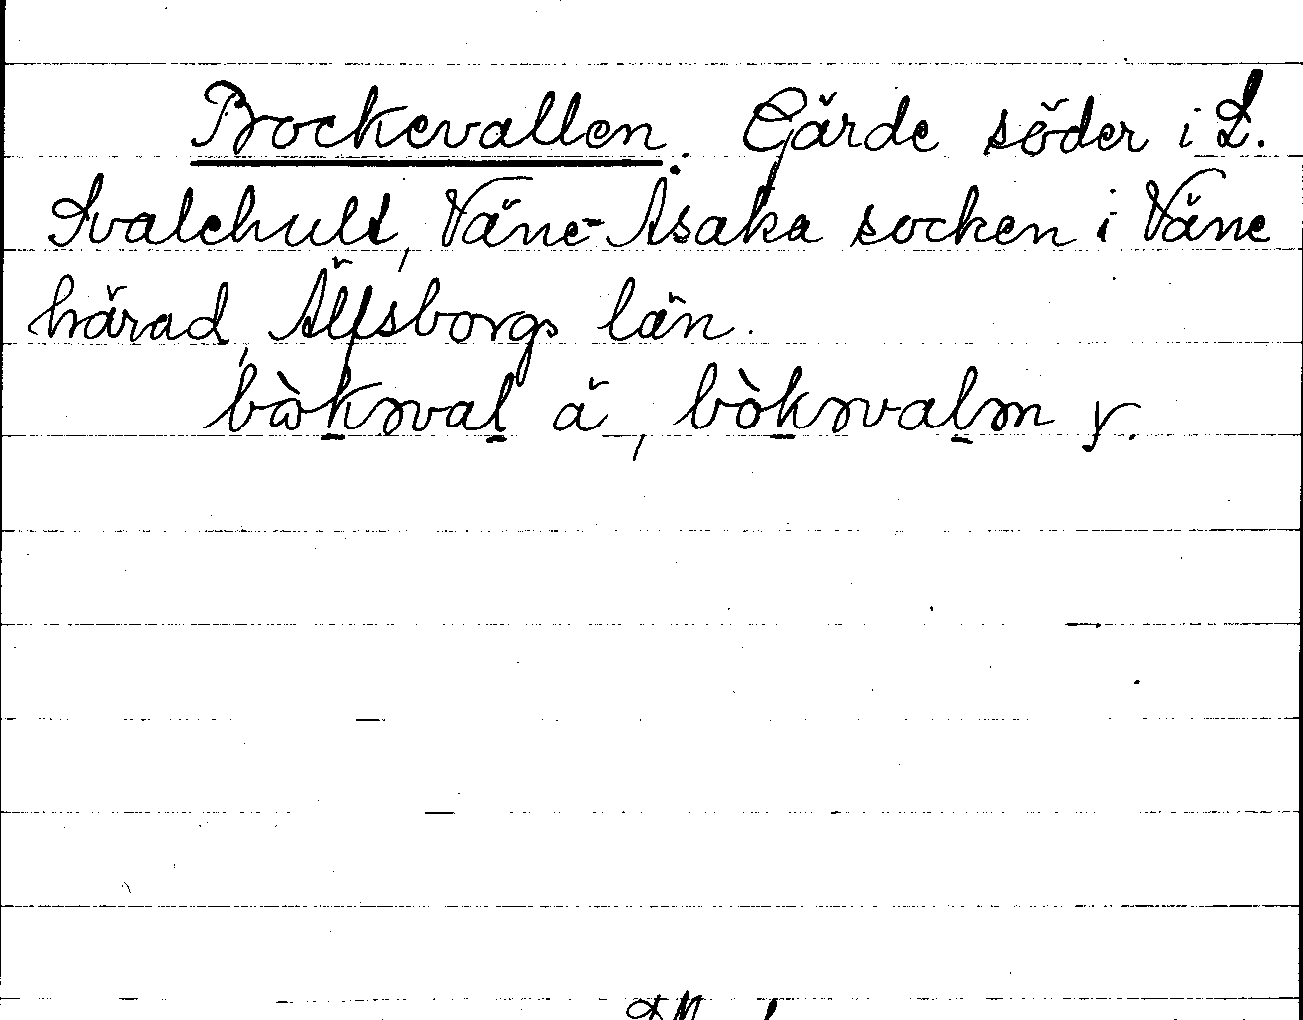 Bockevallen. Gärde söder i L.
Svalehult, Väne-Åsaka socken i Väne
härad, Älfsborgs län.
bòkəval ä, bòkəvalən y.